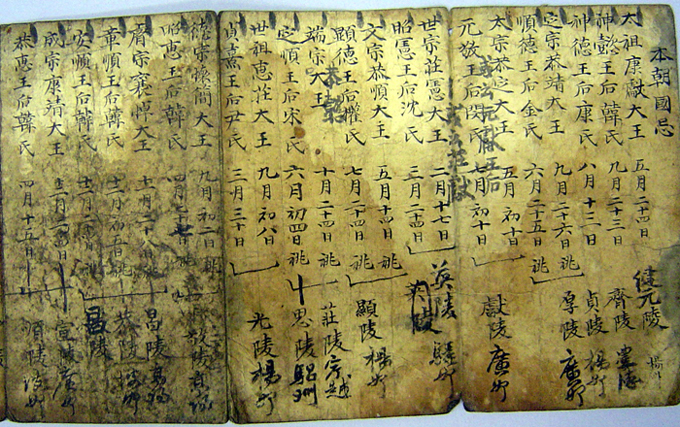 本朝國忌
太祖康獻大王 五月二十四日 健元陵 楊
神懿王后韓氏 九月二十三日 齊陵
神德王后康氏 八月十三日 貞陵 楊州
定宗恭靖大王 九月二十六日 祧 厚陵
順德王后金氏 六月二十五日 祧
太宗恭定大王 五月初十日 獻陵 廣州
元敬王后閔氏 七月初十日
世宗莊憲大王 二月十七日 英陵 驪州
昭憲王后沈氏 三月二十四日 英陵
文宗恭順大王 五月十四日 祧 顯陵 楊州
顯德王后權氏 七月二十四日 祧
端宗大王 十月二十四日 祧 莊陵 寧越
定順王后宋氏 六月初四日 祧 思陵
世祖惠莊大王 九月初八日 光陵 楊州
貞熹王后尹氏 三月三十日
德宗懷簡大王 九月初二日 祧 敬陵
昭惠王后韓氏 四月二十七日 祧
睿宗襄悼大王 十一月二十八日 祧 昌陵 高陽
章順王后韓氏 十二月初五日 祧 恭陵
安順王后韓氏 祧 昌陵
成宗康靖大王 十二月二十四日 宣陵 廣州
恭惠王后韓氏 四月十五日 順陵 坡州